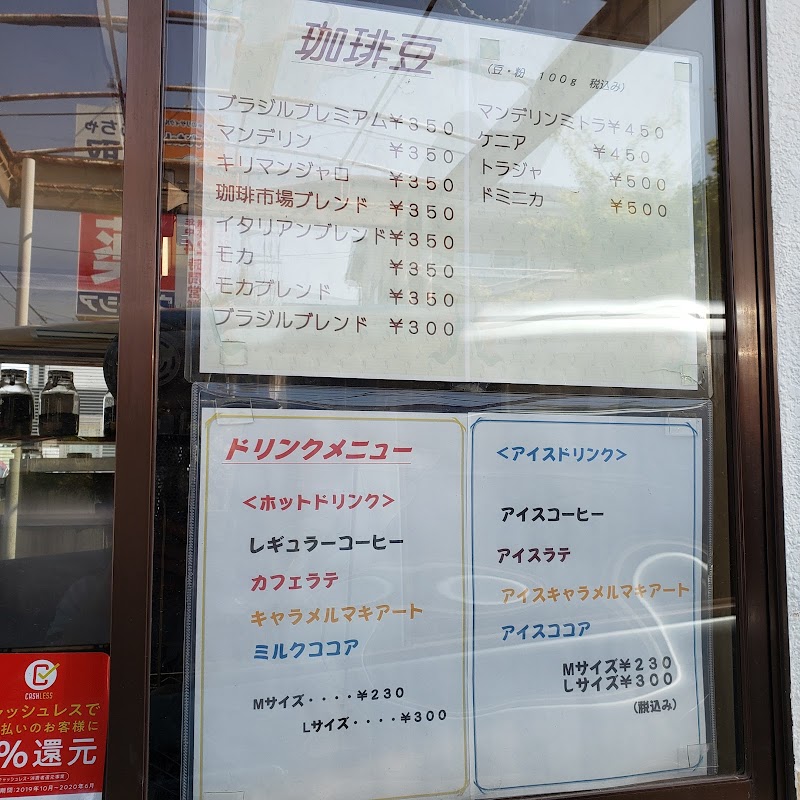 珈琲豆
(豆・粉 100g 税込み)
ブラジルプレミアム¥350
マンデリン ¥350
キリマンジャロ ¥350
珈琲市場ブレンド ¥350
イタリアンブレンド¥350
モカ ¥350
モカブレンド ¥350
ブラジルブレンド ¥300
マンデリンミトラ¥450
ケニア ¥450
トラジャ ¥500
ドミニカ ¥500
ドリンクメニュー
<ホットドリンク>
レギュラーコーヒー
カフェラテ
キャラメルマキアート
ミルクココア
Mサイズ・・・・¥230
Lサイズ・・・・¥300
<アイスドリンク>
アイスコーヒー
アイスラテ
アイスキャラメルマキアート
アイスココア
Mサイズ¥230
Lサイズ¥300
(税込み)
CASHLESS
ャッシュレスで
払いのお客様に
%還元
キャッシュレス・消費者還元事業
期間:2019年10月~2020年6月